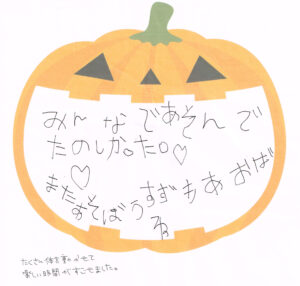 みんなであそんで
たのしかった。♡
♡
またあそぼうすずもあおば
る。
たくさん体を動かせて
楽しい時間がすごせました。